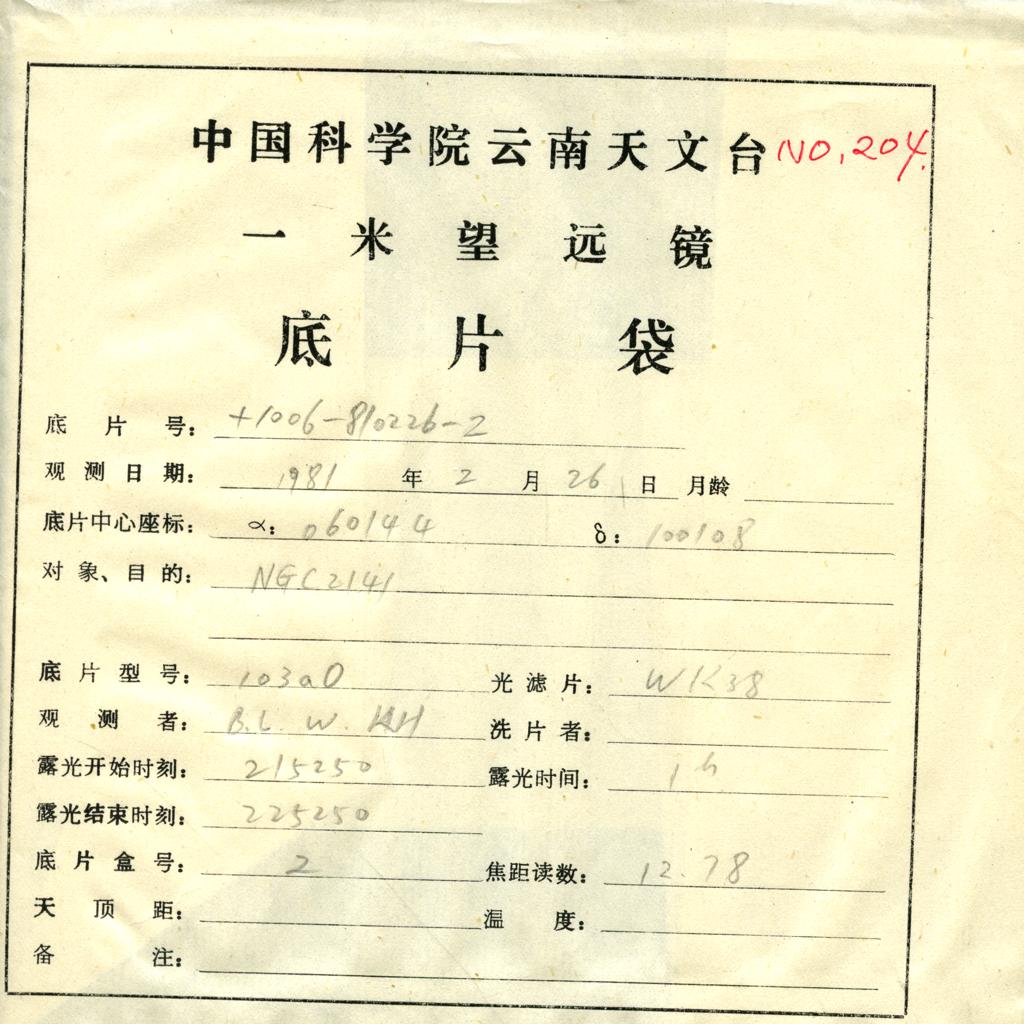 中国科学院云南天文台 NO.204.
一米望远镜
底片袋
底片号: +1006-810226-2
观测日期: 1981 年 2 月 26 日 月龄
底片中心座标: α: 060144 δ: 100108
对象、目的: NGC2141
底片型号: 103aO 光滤片: WK38
观测者: B.L. W. 洗片者:
露光开始时刻: 215250 露光时间: 1h
露光结束时刻: 225250
底片盒号: 2 焦距读数: 12.78
天顶距: 温度:
备注: